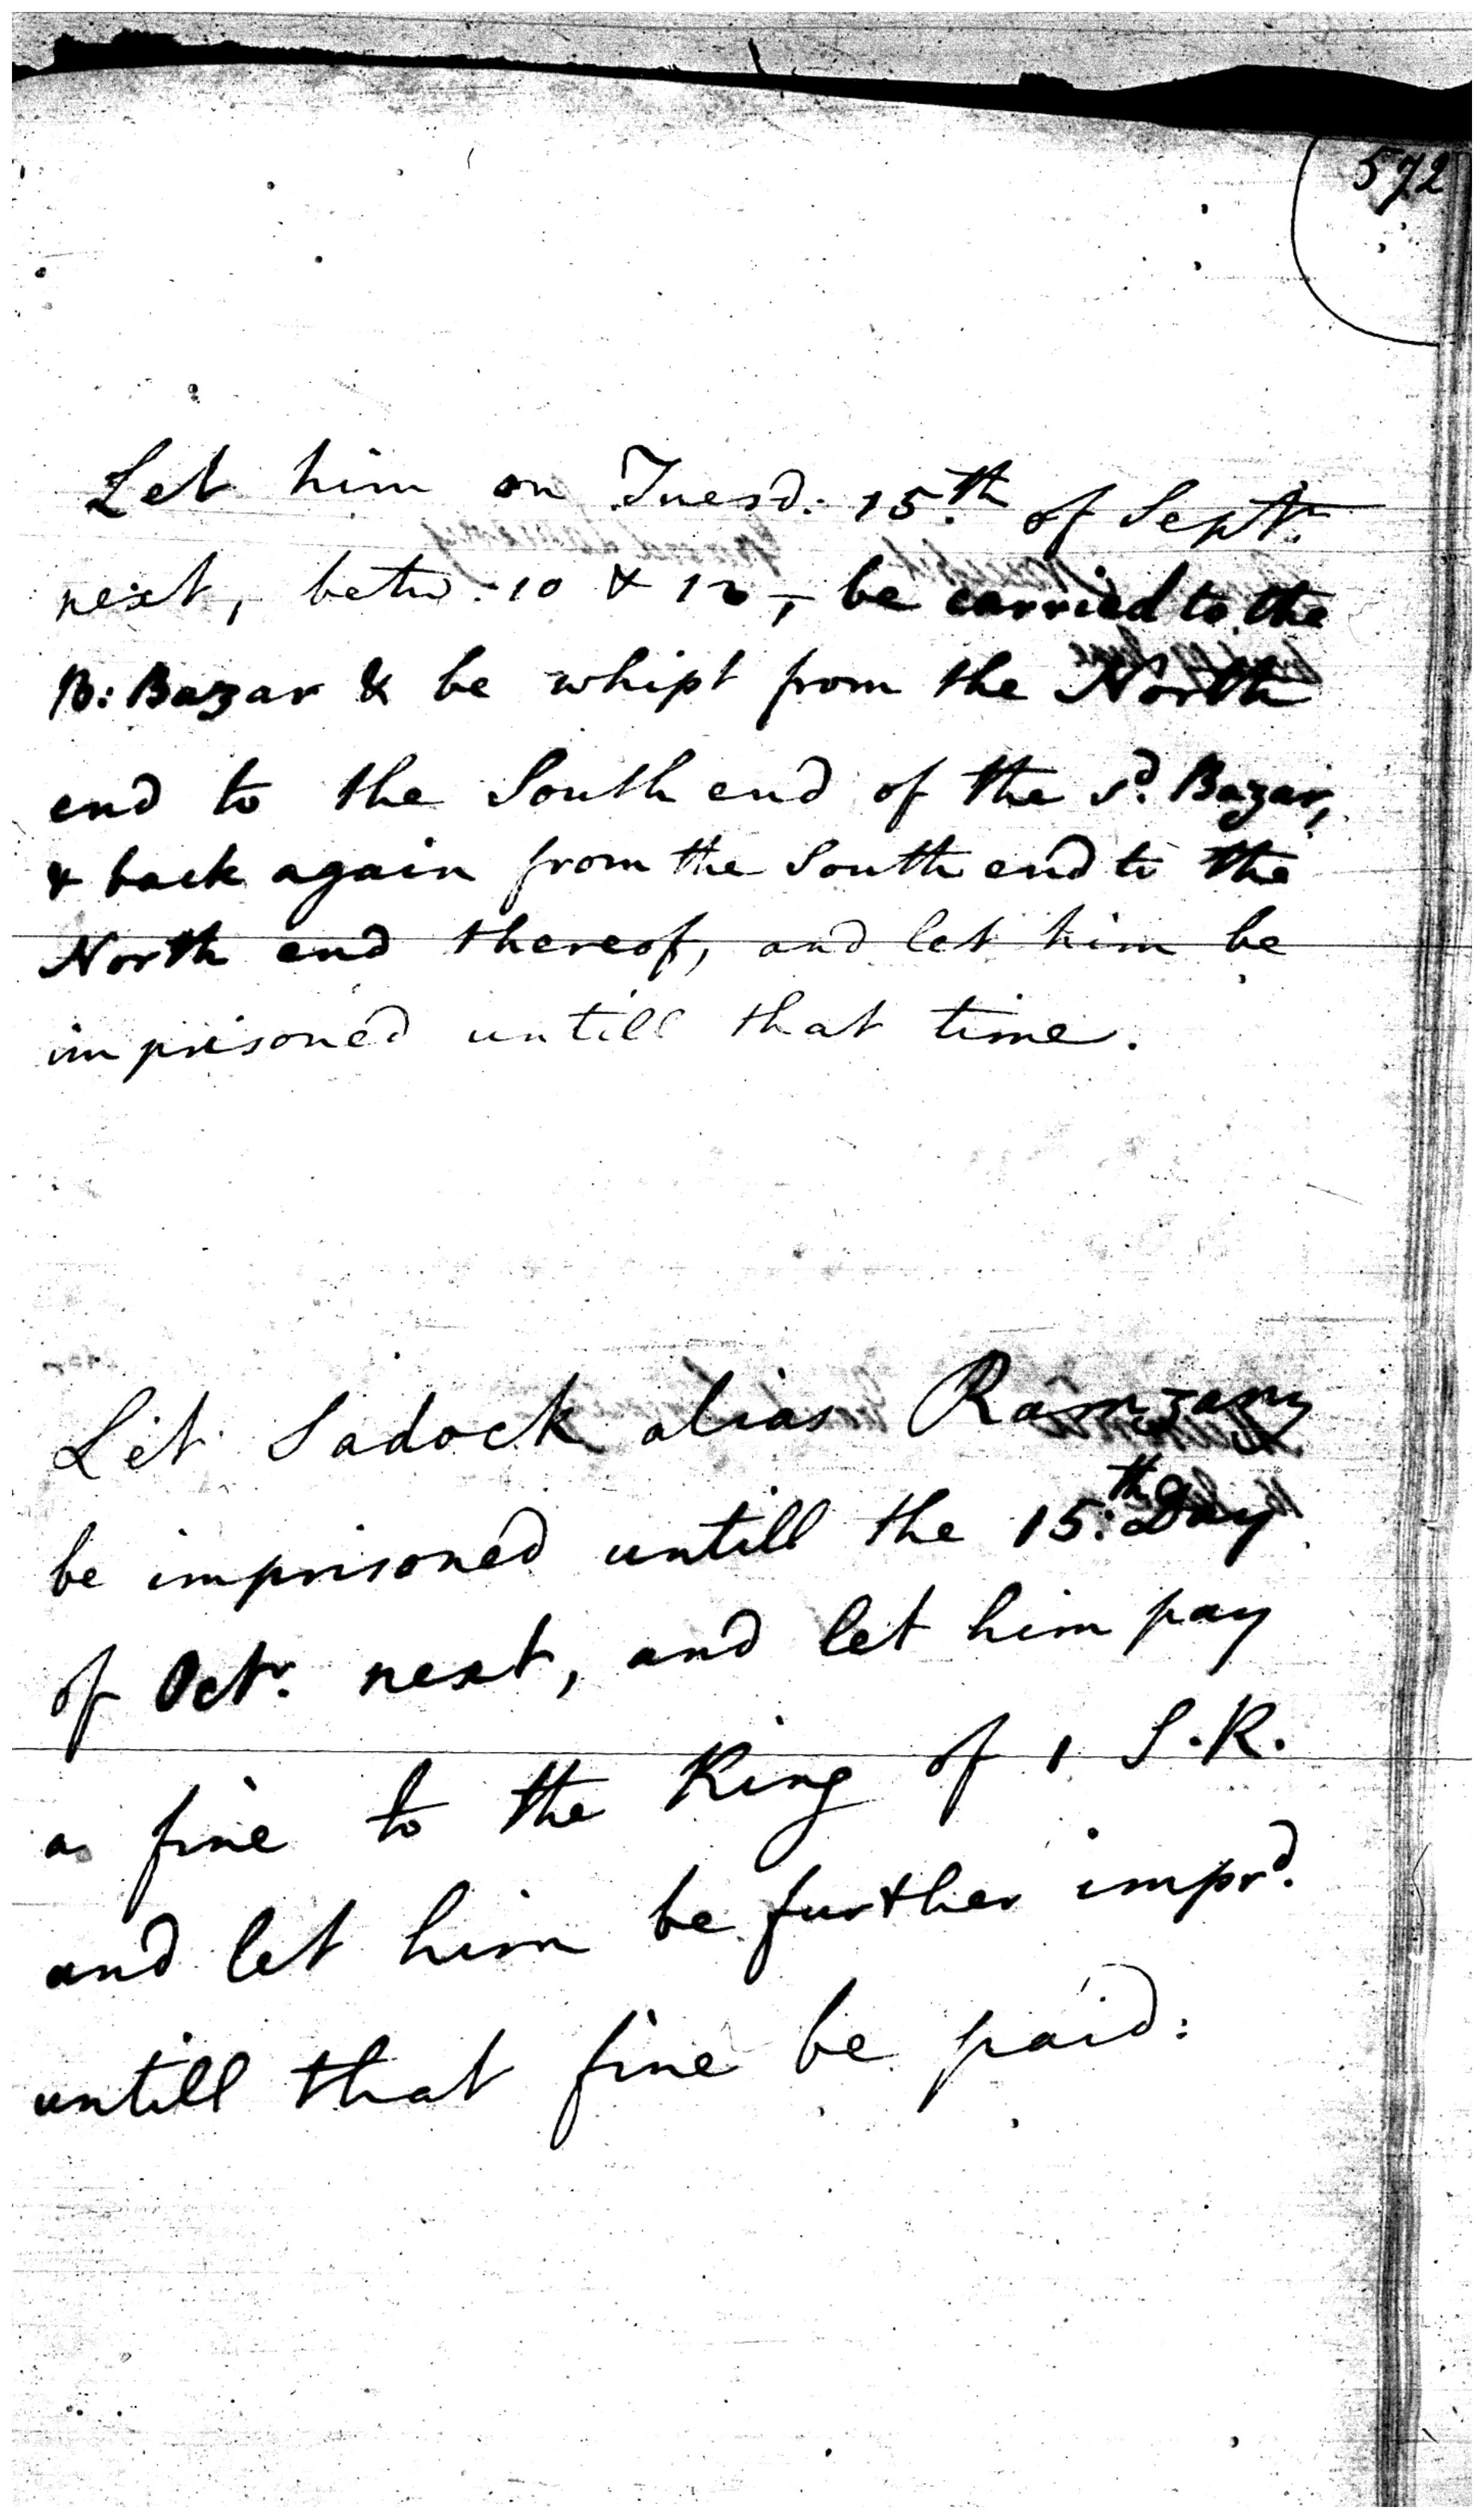 572
Let him on Tuesd: 15.th of Sept.
next, betw: 10 & 12, be carried to the
B: Bazar & be whipt from the North
end to the South end of the sd. Bazar,
& back again from the South end to the
North end thereof, and let him be
imprisoned untill that time.
Let Sadock alias Ramzany
be imprisoned untill the 15:th Day
of Octr. next, and let him pay
a fine to the King of 1 S.R.
and let him be further imprd.
untill that fine be paid: